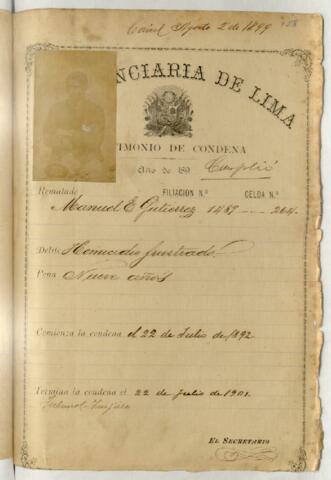 Agosto 2 de 1899
NCIARIA DE LIMA
TIMONIO DE CONDENA
Año de 189
Cumplió
Rematado FILIACION N.º CELDA N.º
Manuel E. Gutierrez 1489 -- 264.
Delito Homicidio frustrado.
Pena Nueve años
Comienza la condena el 22 de Julio de 1892.
Termina la condena el 22 de julio de 1901.
Tribunal
EL SECRETARIO